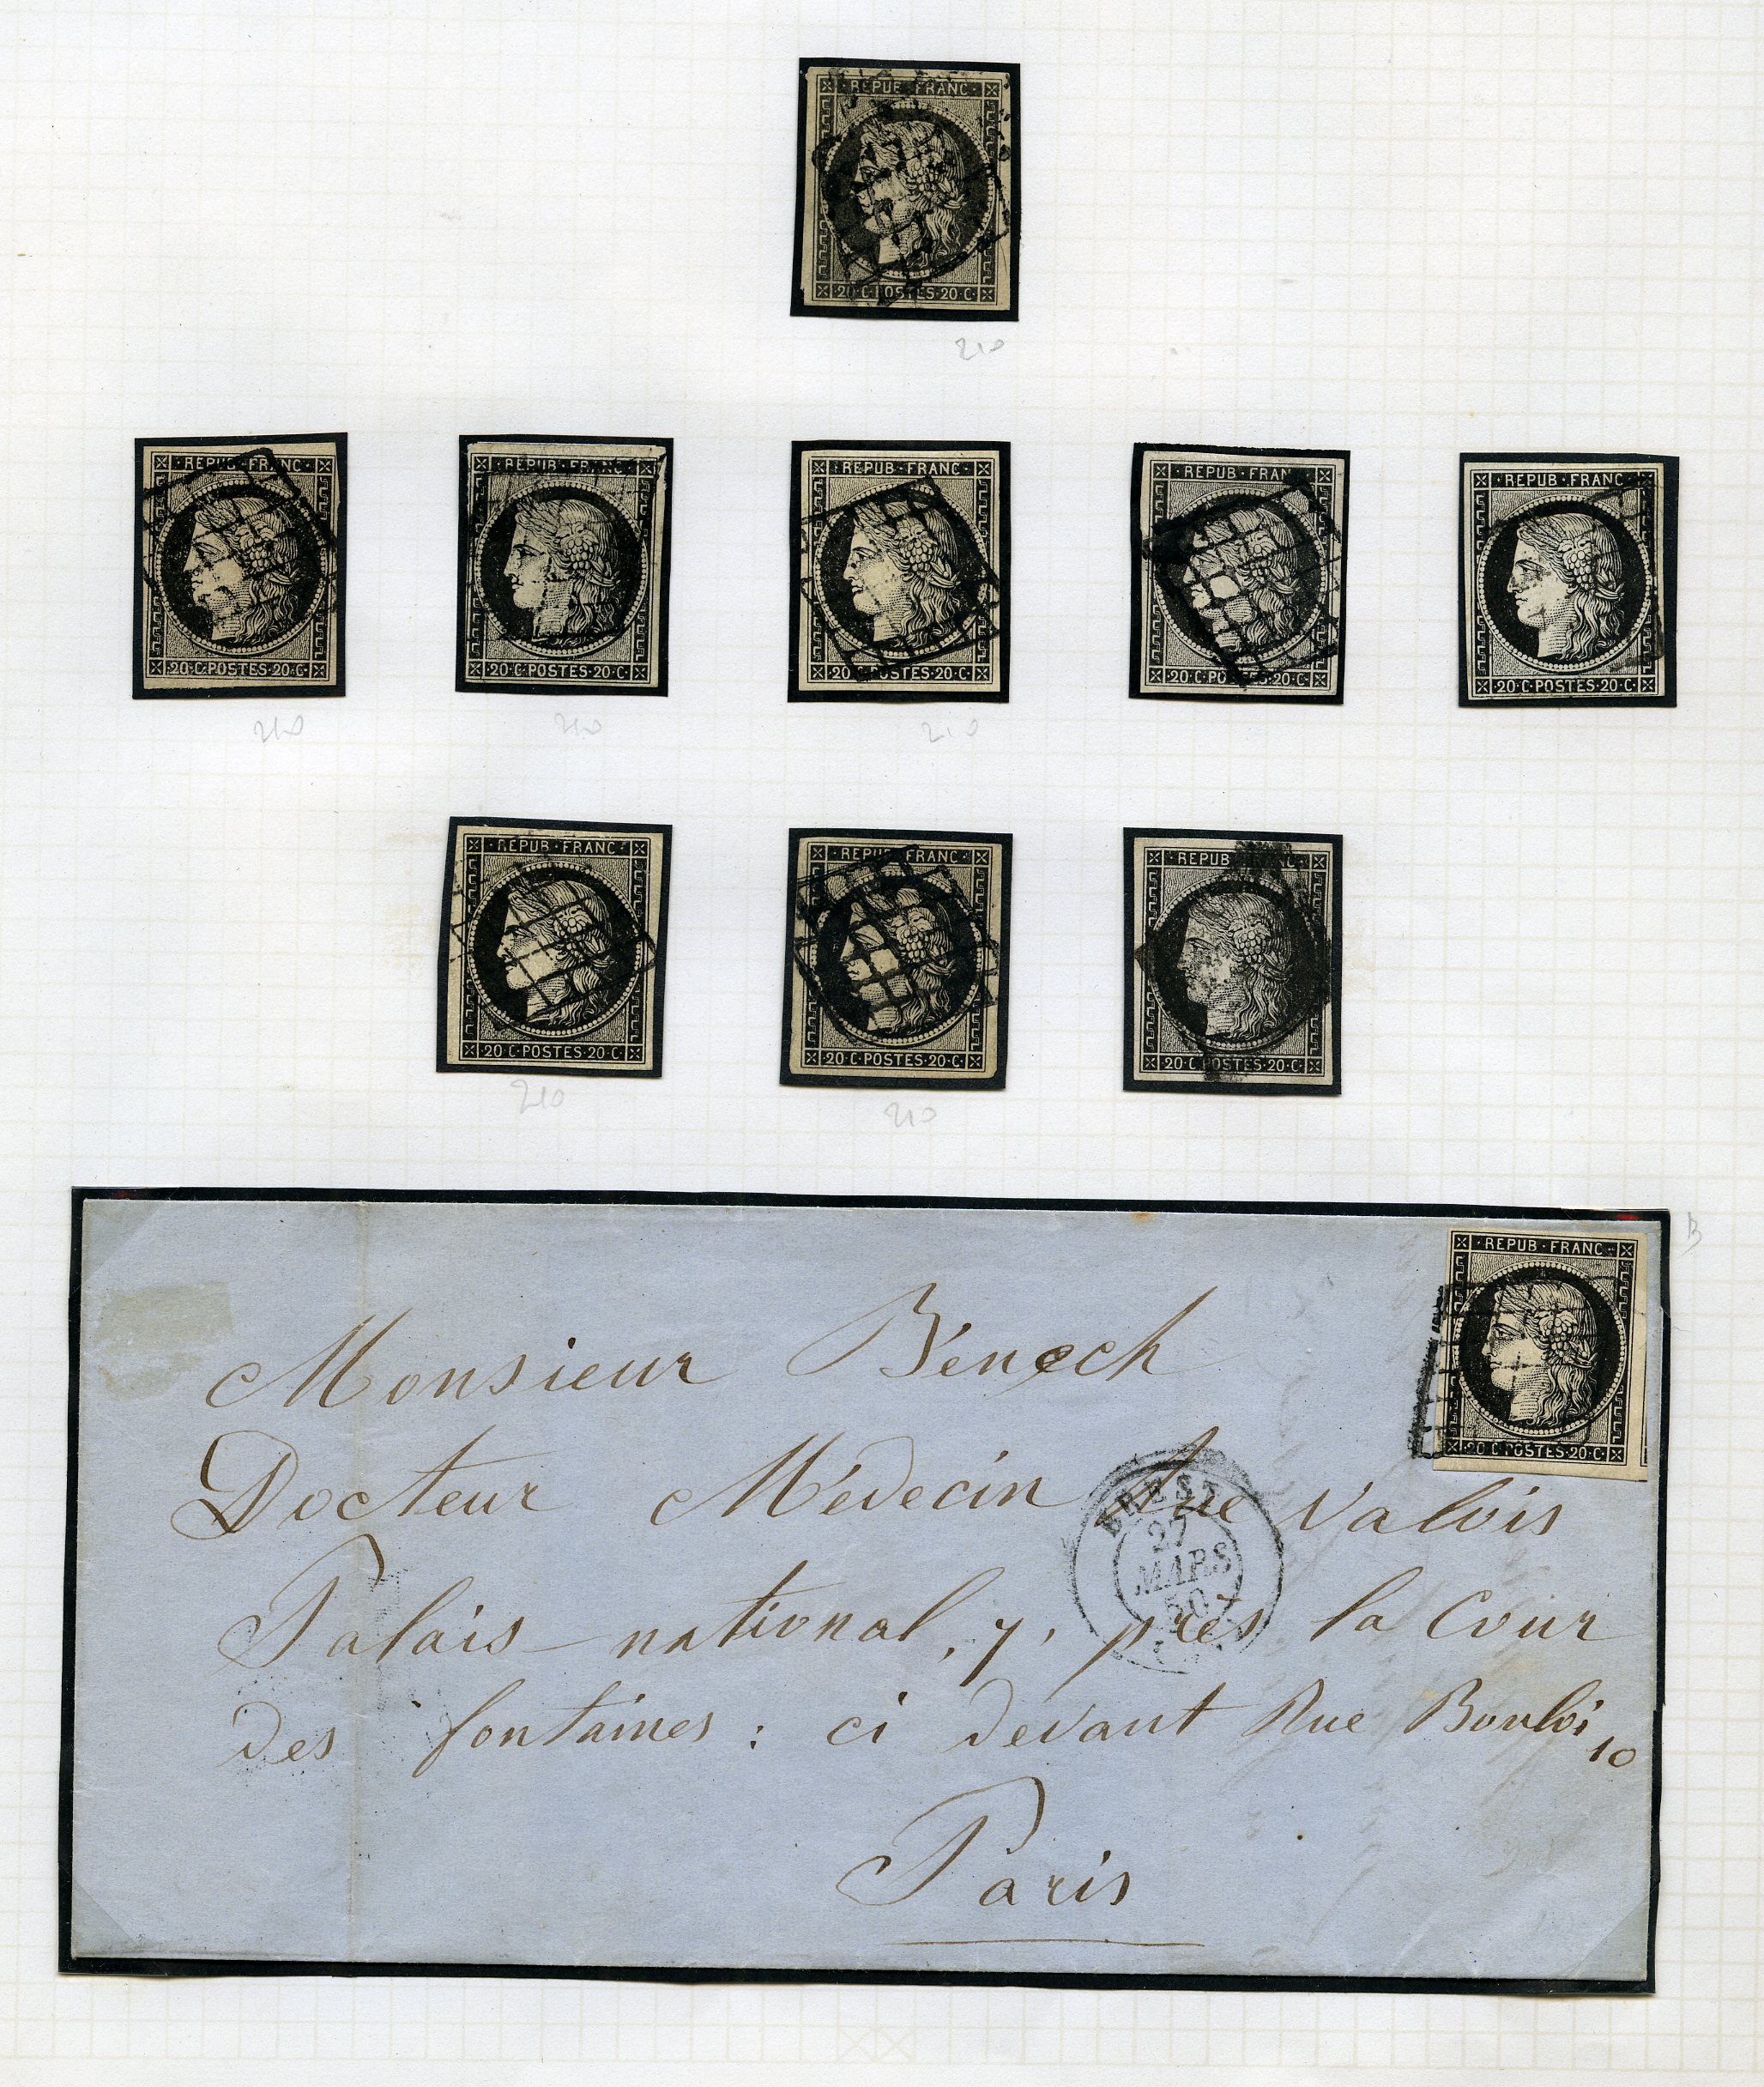 REPUB FRANC
20 C POSTES 20 C
210
REPUB FRANC
20 C POSTES 20 C
210
REPUB FRANC
20 C POSTES 20 C
210
REPUB FRANC
20 C POSTES 20 C
210
REPUB FRAN
20 C POSTES 20 C
REPUB FRANC
20 C POSTES 20 C
REPUB FRANC
20 C POSTES 20 C
210
REPUB FRANC
20 C POSTES 20 C
210
REPUB
20 C POSTES 20 C
B
REPUB FRANC
20 C POSTES 20 C
Monsieur Bénech
Docteur Médecin Rue Valois
Palais national, 7, près la Cour
des fontaines : ci devant Rue Bouloi
10
Paris
BREST
27
MARS
50